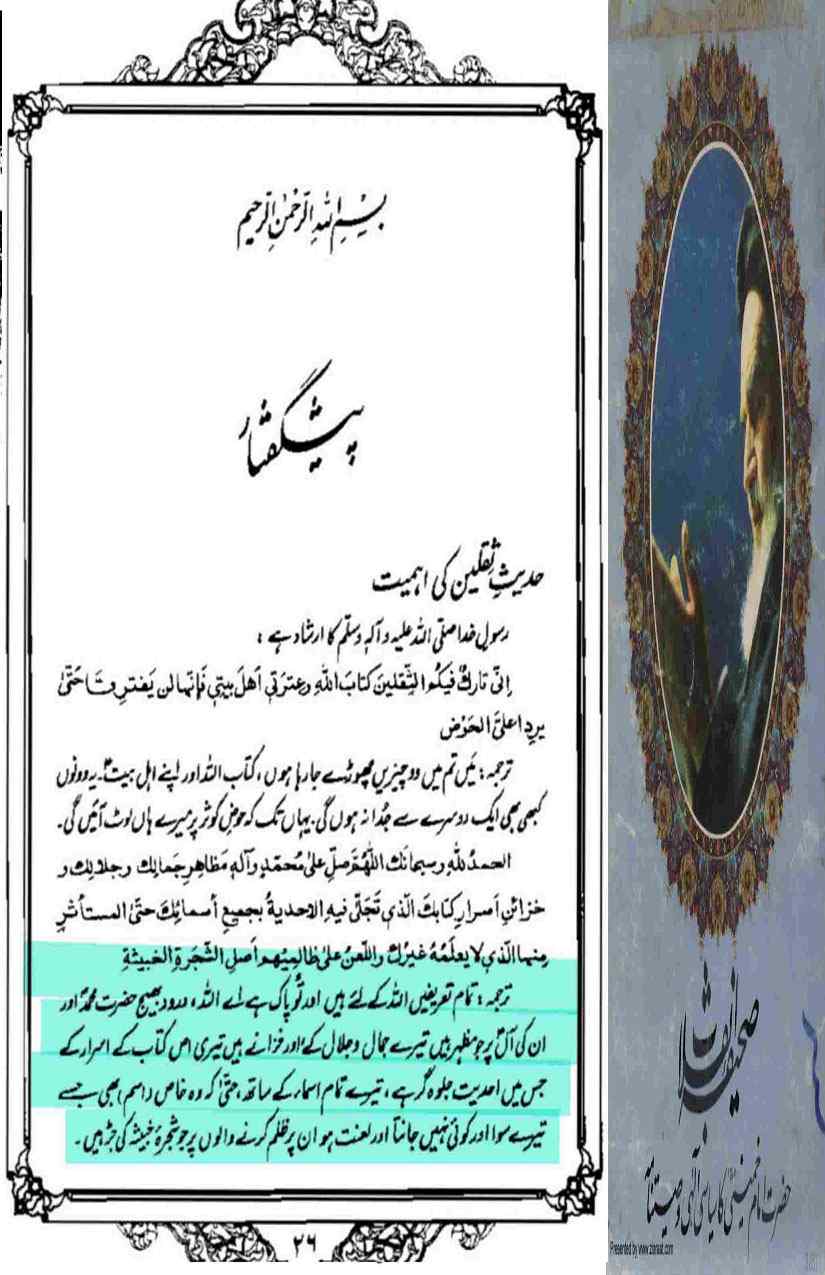 بِسْمِ اللهِ الرَّحْمٰنِ الرَّحِيْمِ
پیشگفتار
حدیثِ ثقلین کی اہمیت
رسولِ خدا صلّی اللہ علیہ و آلہٖ وسلّم کا ارشاد ہے :
اِنّی تارکٌ فیکُم الثِّقلینَ کتابَ اللهِ وعترتي أهلَ بیتي فَإنّهما لن یَفترقا حَتّیٰ
یرِدا علیَّ الحَوْض
ترجمہ : میں تم میں دو چیزیں چھوڑے جا رہا ہوں، کتاب اللہ اور اپنے اہل بیتؑ۔ یہ دونوں
کبھی بھی ایک دوسرے سے جُدا نہ ہوں گی۔ یہاں تک کہ حوضِ کوثر پر میرے ہاں لوٹ آئیں گی۔
الحمدُ للهِ وسبحانَك اللّٰهُمَّ صلِّ علیٰ مُحمّدٍ وآلهٖ مَظاهِرِ جَمالِك وجلالِك و
خزائنِ أسرارِ کتابكَ الّذي تَجلّیٰ فیهِ الاحدیةُ بجمیعِ أسمائِكَ حتّیٰ المستأثرِ
مِنها الّذي لا یعلَمُهُ غیرُك واللّعنُ علیٰ ظالِمِیْهم أصلِ الشَّجَرةِ الخبیثةِ
ترجمہ : تمام تعریفیں اللہ کے لئے ہیں اور تُو پاک ہے اے اللہ، درود بھیج حضرت محمدؐ اور
ان کی آلؑ پر جو مظہر ہیں تیرے جمال و جلال کے اور خزانے ہیں تیری اس کتاب کے اسرار کے
جس میں احدیت جلوہ گر ہے، تیرے تمام اسماء کے ساتھ، حتیٰ کہ وہ خاص اسم بھی جسے
تیرے سوا اور کوئی نہیں جانتا اور لعنت ہو ان پر ظلم کرنے والوں پر جو شجرۂ خبیثہ کی جڑ ہیں۔
۲۶
صحیفۂ انقلاب
حضرت امام خمینیؒ کا سیاسی الٰہی وصیتنامہ
Presented by www.ziaraat.com